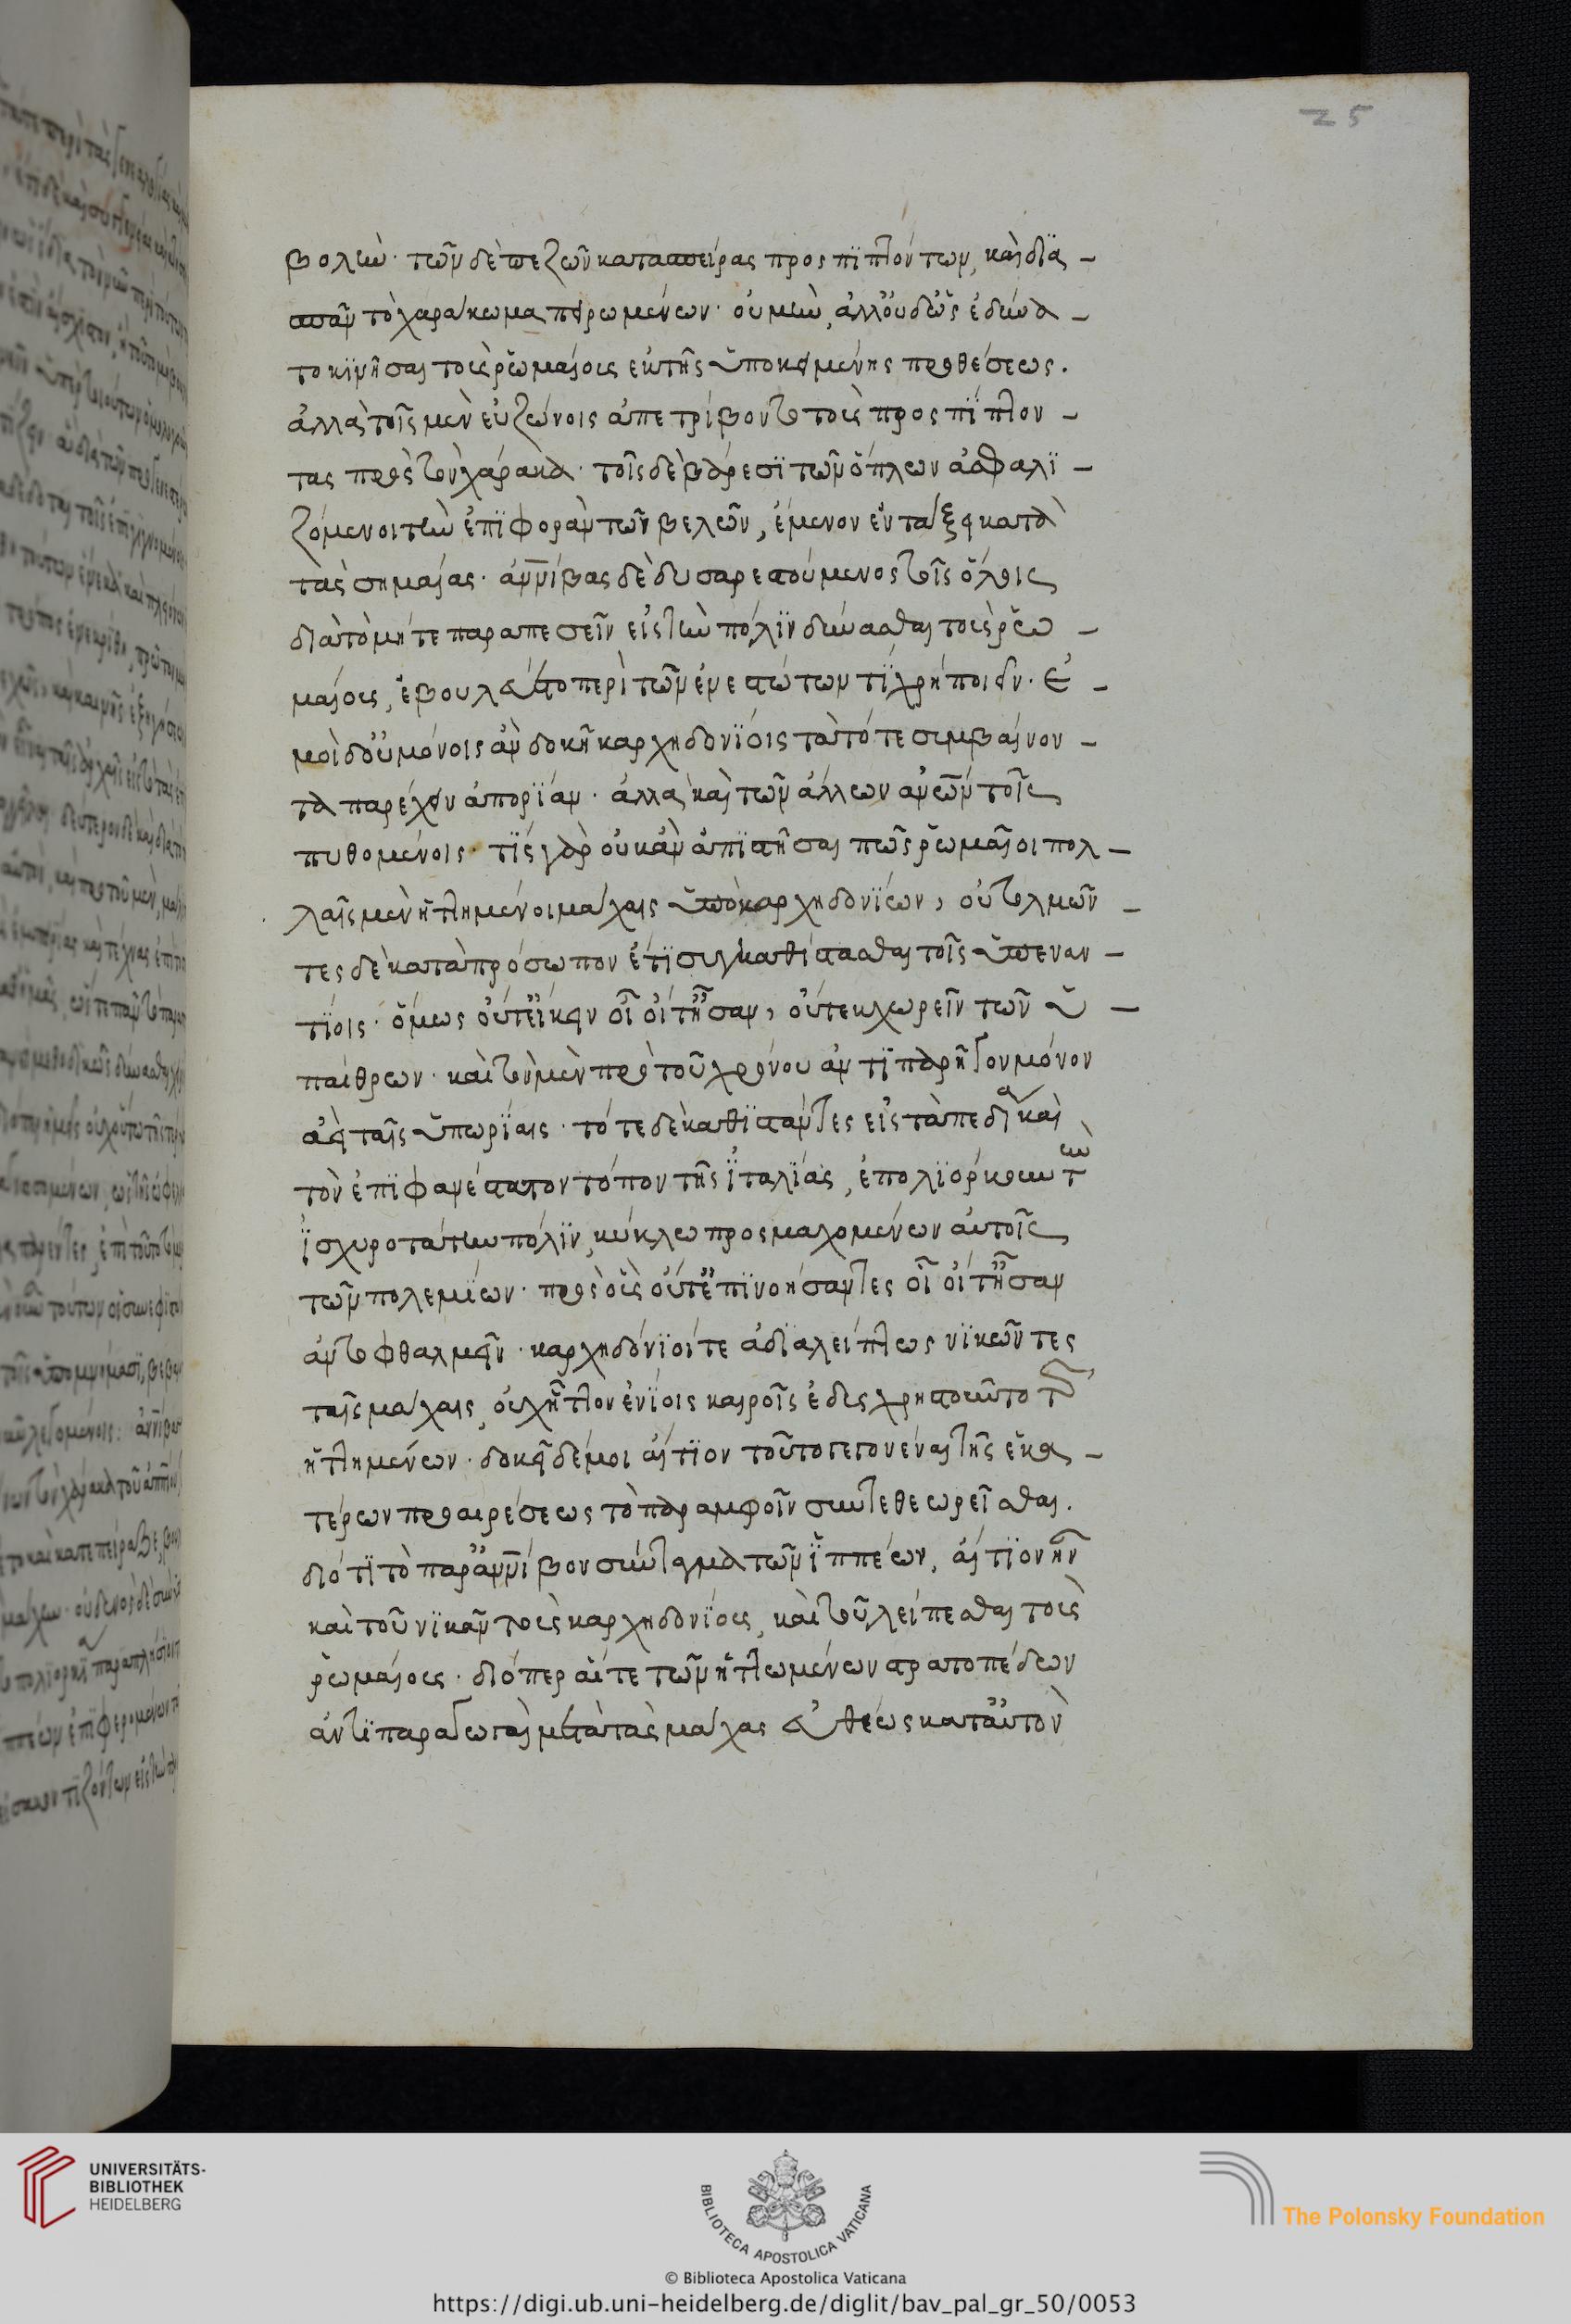 25
βολὴν· τῶν δὲ πεζῶν κατασπείρας προσπιπτόντων, καὶ δια-
σπᾶν τὸ χαράκωμα πειρωμένων· οὐ μὴν ἀλλ' οὐδ' ὣς ἐδύνα-
το κινῆσαι τοὺς ῥωμαίους ἐκ τῆς ὑποκειμένης προθέσεως.
ἀλλὰ τοῖς μὲν εὐζώνοις ἀπετρίβοντο τοὺς προσπίπτον-
τας πρὸς τὸν χάρακα· τοῖς δὲ βάρεσι τῶν ὅπλων ἀσφαλι-
ζόμενοι τὴν ἐπιφορὰν τῶν βελῶν, ἔμενον ἐν τάξει κατὰ
τὰς σημαίας· ἀννίβας δὲ δυσαρεστούμενος τοῖς ὅλοις
διὰ τὸ μήτε παραπεσεῖν εἰς τὴν πόλιν δύνασθαι τοὺς ῥω-
μαίους, ἐβουλεύετο περὶ τῶν ἐνεστώτων τί χρὴ ποιεῖν· ἐ-
μοὶ δ' οὐ μόνοις ἂν δοκῆ καρχηδονίοις τὰ τότε συμβαίνον-
τα παρέχειν ἀπορίαν· ἀλλὰ καὶ τῶν ἄλλων ἀνθρώπων τοῖς
πυθομένοις· τίς γὰρ οὐκ ἂν ἀπιστῆσαι πῶς ῥωμαῖοι πολ-
λαῖς μὲν ἡττημένοι μάχαις ὑπὸ καρχηδονίων, οὐ τολμῶν-
τες δὲ κατὰ πρόσωπον ἔτι συγκαθίστασθαι τοῖς ὑπεναν-
τίοις· ὅμως οὔτ' εἴκειν οἷοί τ' ἦσαν, οὔτ' ἐκχωρεῖν τῶν ὑ-
παίθρων· καὶ τὸν μὲν πρὸ τοῦ χρόνου ἀντιπαρῆγον μόνον
ἀεὶ ταῖς ὑπωρίαις· τότε δὲ καθίσαντες εἰς τὰ πεδία καὶ
τὸν ἐπιφανέστατον τόπον τῆς ἰταλίας, ἐπολιόρκουν τὴν
ἰσχυροτάτην πόλιν, κύκλω προσμαχομένων αὐτοῖς
τῶν πολεμίων· πρὸς οὓς οὔτ' ἐπινοήσαντες οἷοί τ' ἦσαν
ἀντοφθαλμεῖν· καρχηδόνιοί τε ἀδιαλείπτως νικῶντες
ταῖς μάχαις, οὐχ ἧττον ἐνίοις καιροῖς ἐδυσχρηστοῦντο τῶν
ἡττημένων· δοκεῖ δέ μοι αἴτιον τοῦτο γεγονέναι τῆς ἑκα-
τέρων προαιρέσεως τὸ παρ' ἀμφοῖν συντεθεωρεῖσθαι.
διότι τὸ παρ' ἀννίβου σύνταγμα τῶν ἱππέων, αἴτιον ἦν
καὶ τοῦ νικᾶν τοὺς καρχηδονίους, καὶ τοῦ λείπεσθαι τοὺς
ῥωμαίους· διόπερ αἵ τε τῶν ἡττωμένων στρατοπέδων
ἀντιπαραγωγαὶ μετὰ τὰς μάχας εὐθέως κατ' αὐτὸν
UNIVERSITÄTS-
BIBLIOTHEK
HEIDELBERG
BIBLIOTECA APOSTOLICA VATICANA
The Polonsky Foundation
© Biblioteca Apostolica Vaticana
https://digi.ub.uni-heidelberg.de/diglit/bav_pal_gr_50/0053